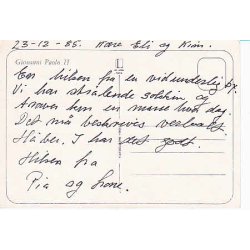 23-12-85. Kære Eli og Kim.
Giovanni Paolo II
En hilsen fra en vidunderlig by.
Vi har strålende solskin og
hem en masse hver dag.
Det må beskrives
Håber I har det godt.
Hilsen fra
Pia og Lone.